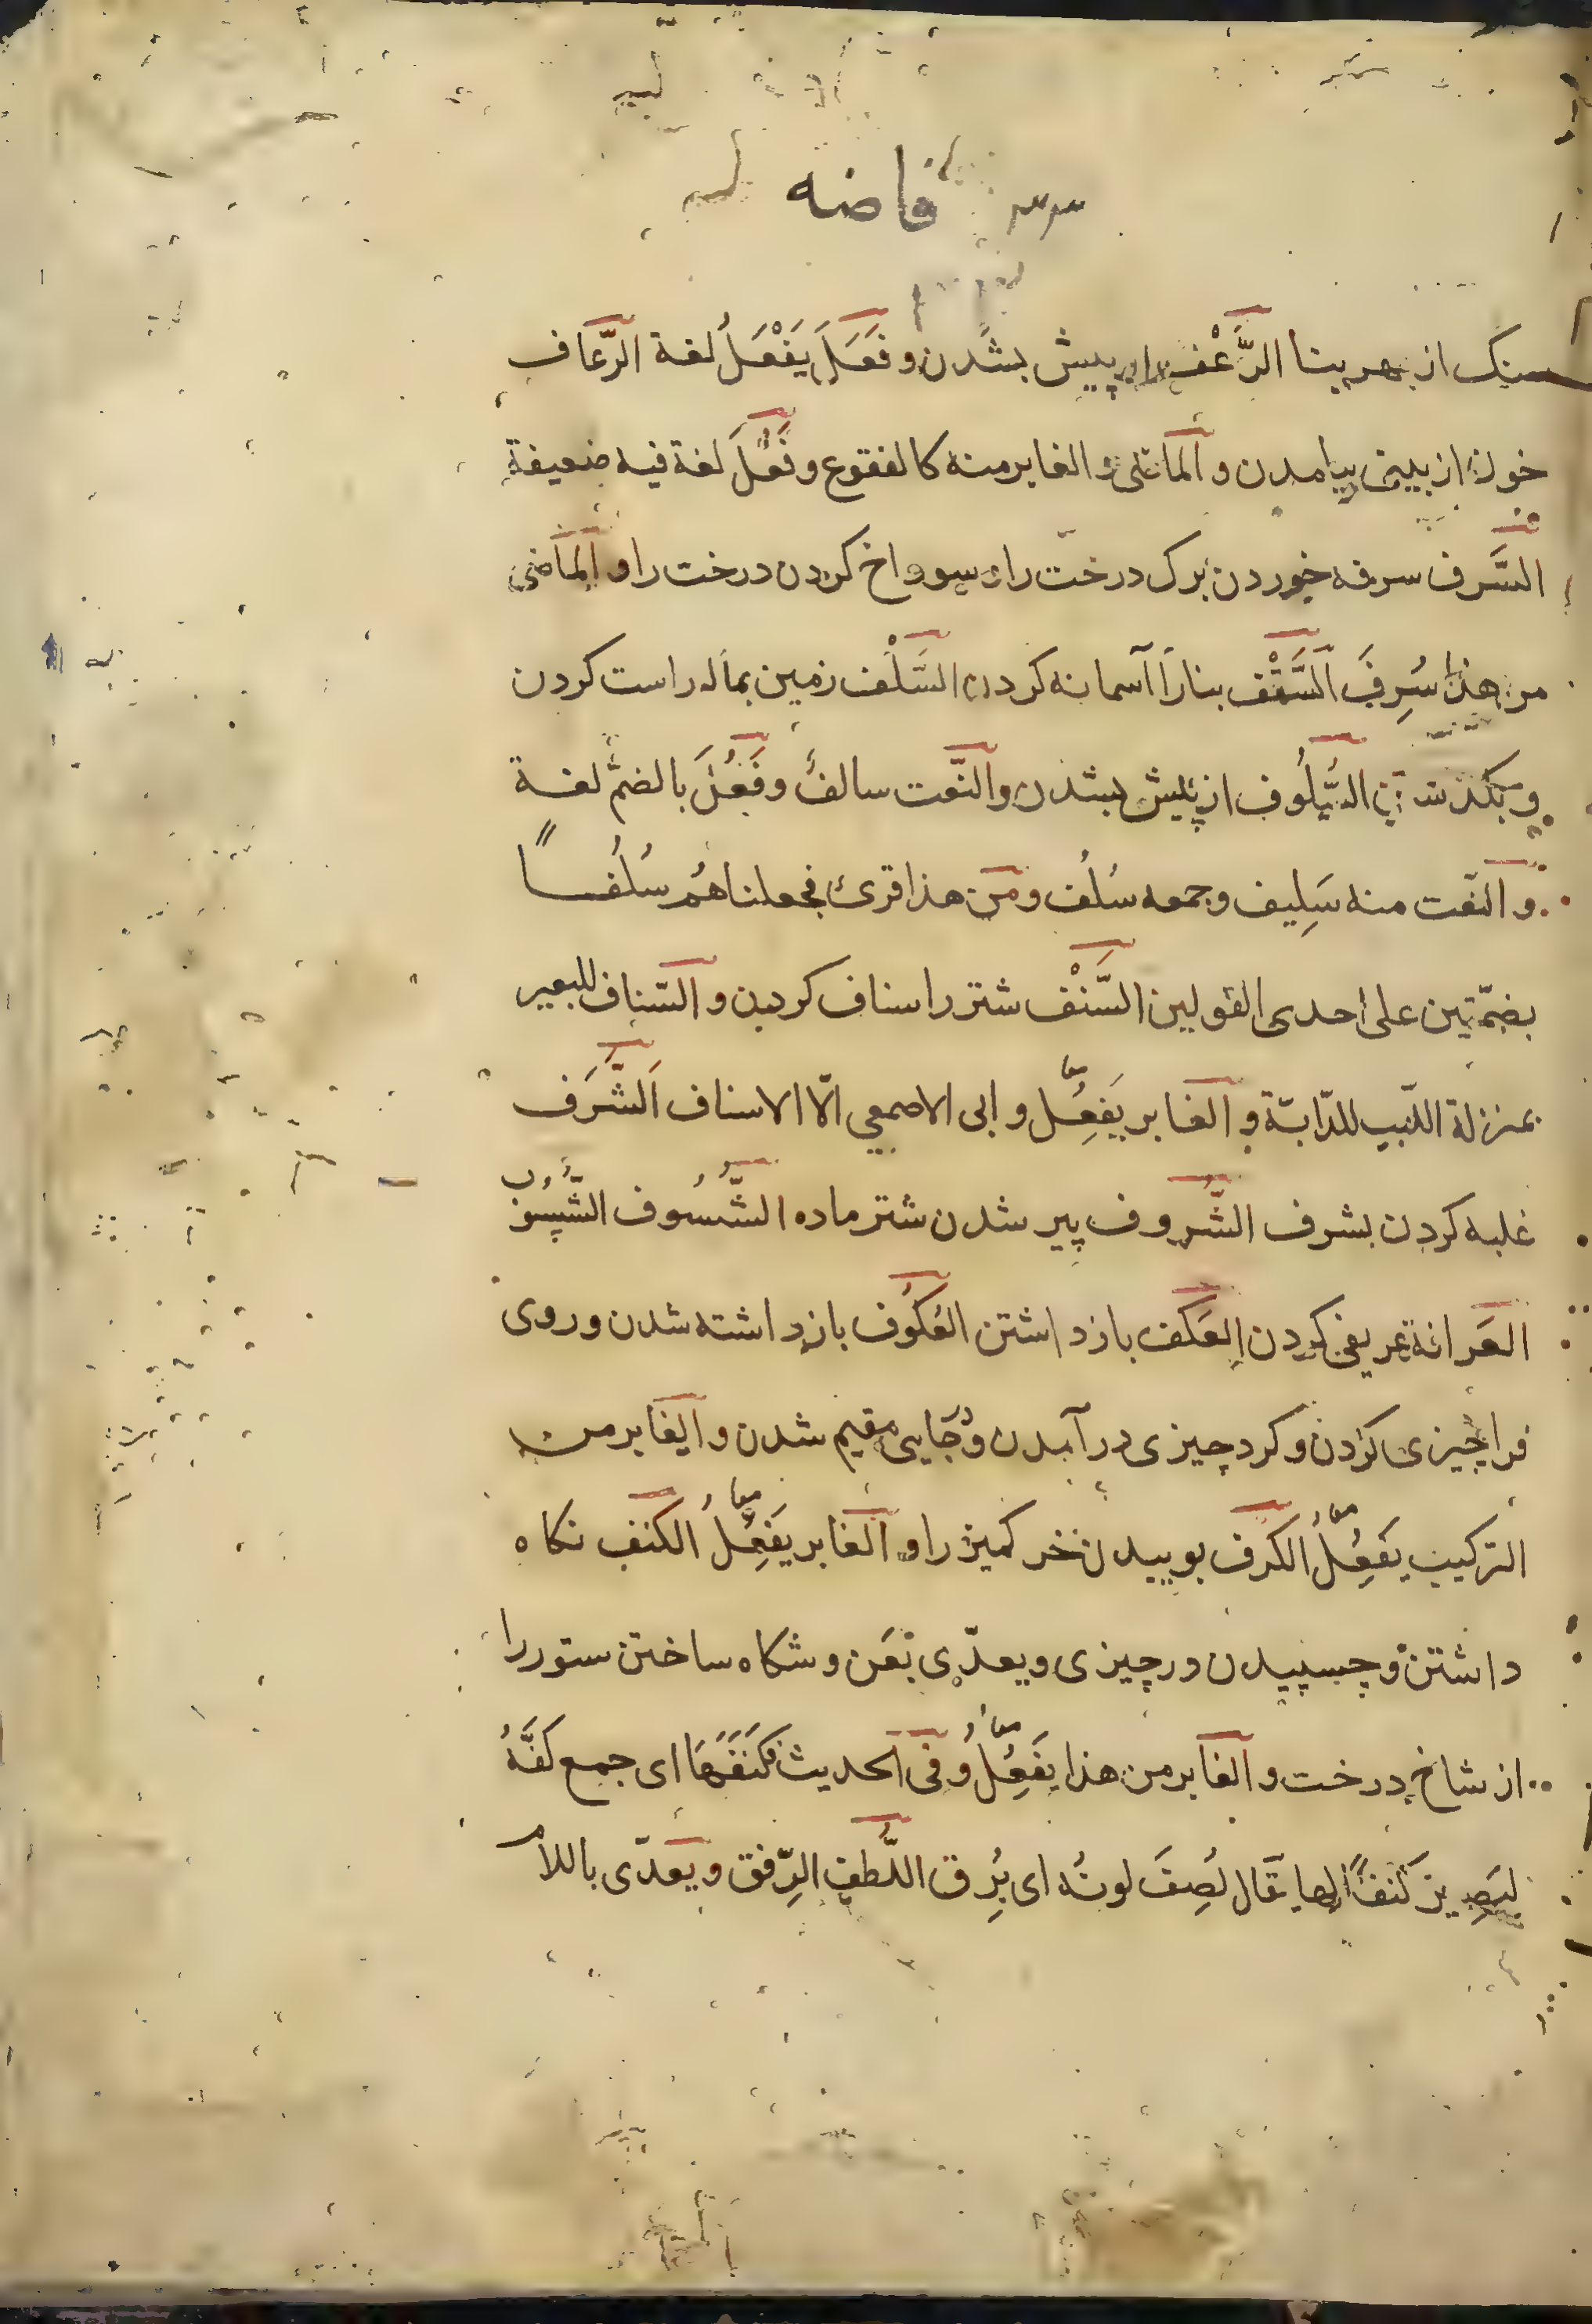 فاضه
سنک از بهر بنا الرَّعْف از پیش بشدن و فَعَلَ یَفْعَلُ لغة الرّعاف
خون از بینی بیامدن و الماضی و الغابر منه کالفقوع و فَعُلَ لغة فیه ضعیفة
السَّرف سرفه خوردن برک درخت را و سوراخ کردن درخت را و الماضی
من هذا سُرِفَ السَّقْف بنا را آسمانه کردن السَّلْف زمین بماله راست کردن
السُّلُوف از پیش بشدن والنّعت سالفٌ و فَعُلَ بالضمّ لغة
والنّعت منه سَلِیف وجمعه سُلُف ومن هذا قرئ فجعلناهُم سُلُفًا
بضمّتین علی احدی القولین السَّنْف شتر را سناف کردن و السّناف للبعیر
بمنزلة اللّبب للدّابّة و الغابر یَفعُِل و ابی الاصمعی الّا الاسناف الشَّرَف
غلبه کردن بشرف الشُّروف پیر شدن شتر ماده الشُّسُوف الشُّسُوب
العَرافة عریفی کردن العَکف بازداشتن العُکُوف بازداشته شدن و روی
فرا چیزی کردن و کرد چیزی درآمدن و بجایی مقیم شدن و الغابر من
الترکیب یَفعُِلُ الکَرف بوییدن خر کمیز را و الغابر یَفعُِلُ الکنف نکاه
داشتن و چسپیدن در چیزی و یعدّی بعَن و شکاه ساختن ستور را
از شاخ درخت و الغابر من هذا یَفعُِلُ و فی الحدیث فکَنَفَهَا ای جمع کفَّهُ
لیَصِیرَ کَنَفًا لها یقال نُصِفَ لونُه ای بُرِق اللُّطف الرِّفق و یعدّی باللام